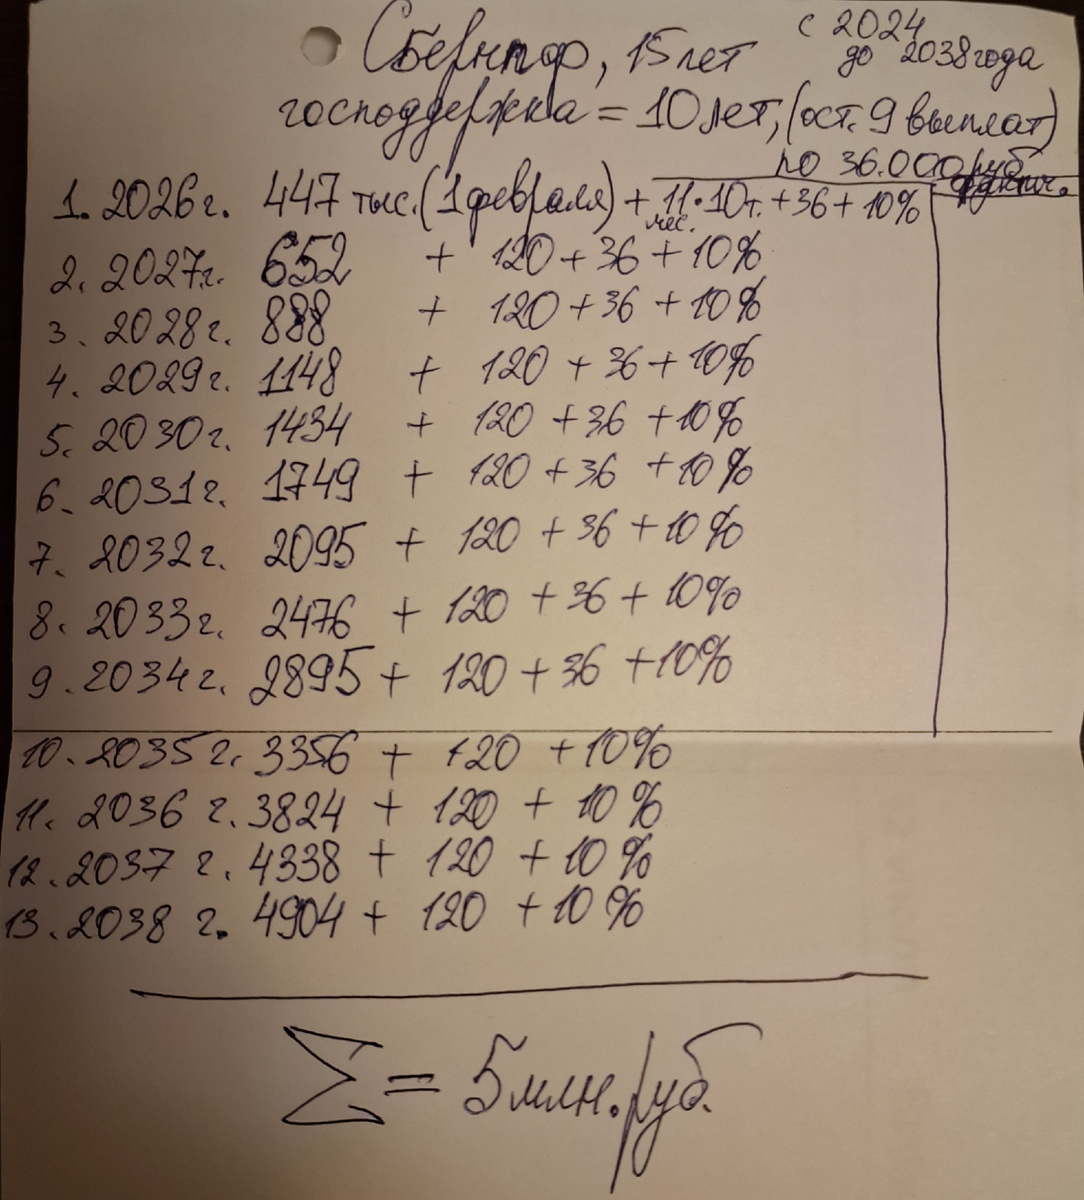 Сбернпф, 15 лет
с 2024
до 2038 года
господдержка = 10 лет, (ост. 9 выплат)
по 36.000 руб
фактич.
1. 2026 г. 447 тыс. (1 февраля) + 11·10т. + 36 + 10%
мес.
2. 2027г. 652 + 120 + 36 + 10%
3. 2028 г. 888 + 120 + 36 + 10%
4. 2029г. 1148 + 120 + 36 + 10%
5. 2030г. 1434 + 120 + 36 + 10%
6. 2031 г. 1749 + 120 + 36 + 10%
7. 2032 г. 2095 + 120 + 36 + 10%
8. 2033 г. 2476 + 120 + 36 + 10%
9. 2034 г. 2895 + 120 + 36 + 10%
10. 2035 г. 3356 + 120 + 10%
11. 2036 г. 3824 + 120 + 10%
12. 2037 г. 4338 + 120 + 10%
13. 2038 г. 4904 + 120 + 10%
Σ = 5 млн. руб.